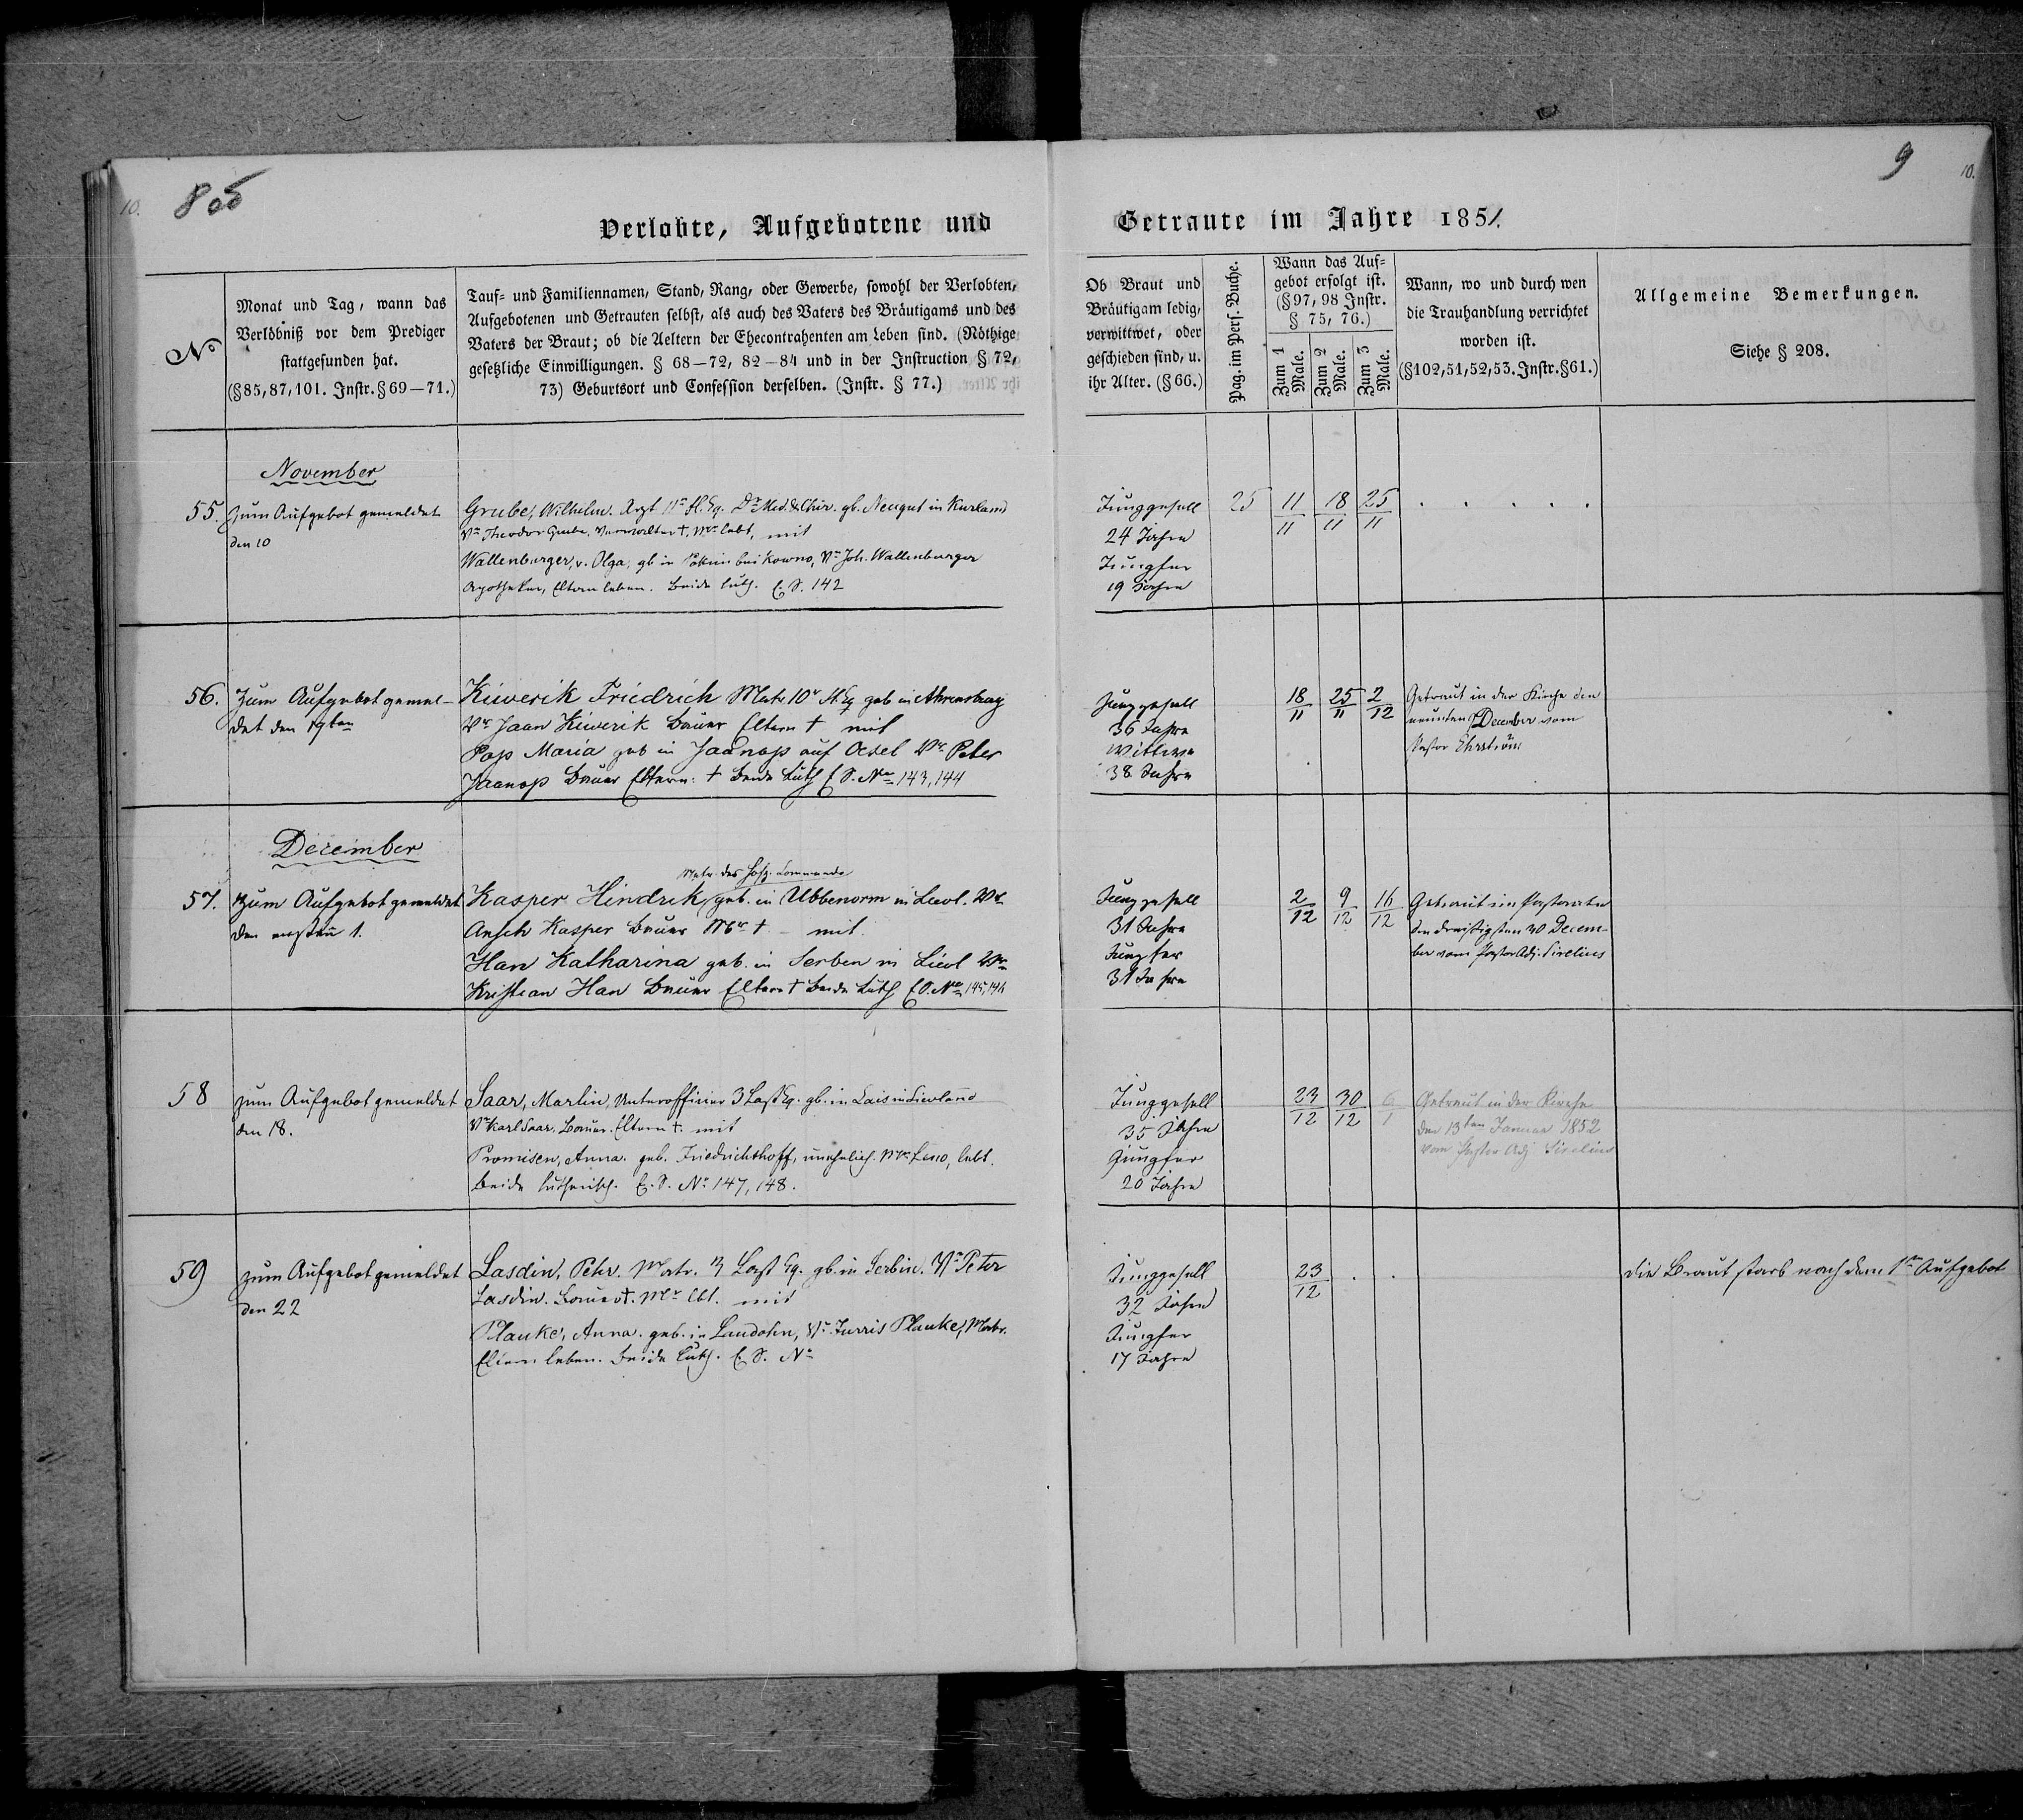 10.
805
9
10.
Verlobte, Aufgebotene und
Getraute im Jahre 1851.
No
Monat und Tag, wann das
Verlöbniß vor dem Prediger
stattgefunden hat.
(§85,87,101. Instr. §69—71.)
Tauf= und Familiennamen, Stand, Rang, oder Gewerbe, sowohl der Verlobten,
Aufgebotenen und Getrauten selbst, als auch des Vaters des Bräutigams und des
Vaters der Braut; ob die Aeltern der Ehecontrahenten am Leben sind. (Nöthige
gesetzliche Einwilligungen. § 68—72, 82—84 und in der Instruction § 72,
73) Geburtsort und Confession derselben. (Instr. § 77.)
Ob Braut und
Bräutigam ledig,
verwittwet, oder
geschieden sind, u.
ihr Alter. (§66.)
Pag. im Pers. Buche.
Wann das Auf=
gebot erfolgt ist.
(§97, 98 Instr.
§ 75, 76.)
Zum 1 Male.
Zum 2 Male.
Zum 3 Male.
Wann, wo und durch wen
die Trauhandlung verrichtet
worden ist.
(§102,51,52,53. Instr. §61.)
Allgemeine Bemerkungen.
Siehe § 208.
November
55. zum Aufgebot gemeldet
den 10
Grube, Wilhelm. Arzt Dr Med. & Chir. gb. Neugut in Kurland
Vr Theodor Grube, Verwalter †, Mtr lebt, mit
Wallenburger, v. Olga, gb in bei Kowno, Vr Joh. Wallenburger
Apotheker, Eltern leben. Beide luth. E. S. 142
Junggesell
24 Jahre
Jungfer
19 Jahre
25
11/11 18/11 25/11
56. Zum Aufgebot gemel-
det den 19ten
Kiwerik Friedrich Matr 10r Fl. Eq geb in Ahrensburg
Vr Jaan Kiwerik Bauer Eltern † mit
Pop Maria geb in Jaanop auf Oesel Vr Peter
Jaanop Bauer Eltern: † Beide Luth E. S. No 143, 144
Junggesell
36 Jahre
Wittwe
38 Jahre
18/11 25/11 2/12
Getraut in der Kirche den
neunten December vom
Pastor Ehrström
December
57. Zum Aufgebot gemeldet
den ersten 1.
Matr. des Hosp. Commando
Kasper Hindrik, geb. in Ubbenorm in Lievl. Vr
Ansch Kasper Bauer Mtr † – mit
Han Katharina geb. in Serben in Lievl Vr
Kristian Han Bauer Eltern † Beide Luth E. S. No 145, 146
Junggesell
31 Jahre
Jungfer
31 Jahre
2/12 9/12 16/12
Getraut im Pastorate
den dreißigsten 30 Decem-
ber vom Pastor Adj. Sirelius
58 zum Aufgebot gemeldet
den 18.
Saar, Martin, Unterofficier 3 Last Eq. gb. in Lais in Lievland
Vr Karl Saar, Bauer. Eltern †. mit
Promisen, Anna. geb. Friedrichshoff, unehelich. Mtr Leno, lebt.
Beide lutherisch. E. S. No 147, 148.
Junggesell
35 Jahre
Jungfer
20 Jahre
23/12 30/12 6/1
Getraut in der Kirche
den 13ten Januar 1852
vom Pastor Adj Sirelius
59 zum Aufgebot gemeldet
den 22
Lasdin, Pehr. Matr. 3 Last Eq. gb. in Serbin. Vr Peter
Lasdin. Bauer †. Mtr lbt. mit
Plauke, Anna. geb. in Laudohn, Vr. Jurris Plauke, Matr.
Eltern leben. Beide luth. E. S. No
Junggesell
32 Jahre
Jungfer
17 Jahre
23/12
die Braut starb nach dem 1ten Aufgebot